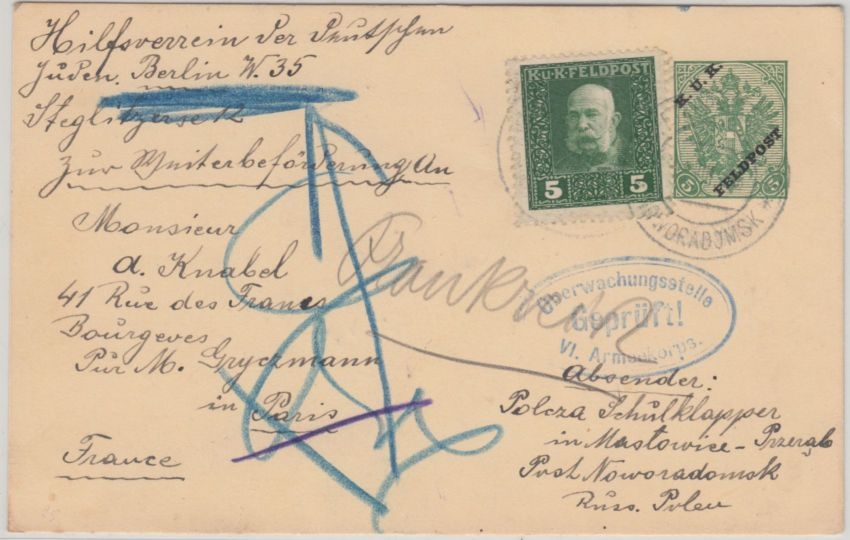 Hilfsverrein der Deutschen
Juden. Berlin W. 35
Steglitzerse 12
Zur Weiterbeförderung An
Monsieur
A. Knabel
41 Rue des Francs
Bourgeves
Pur M. Gryczmann
in Paris
France
K.u.K. FELDPOST
5 5
K.U.K.
FELDPOST
5 5
NORADOMSK
Frankreich
Überwachungsstelle
Geprüft!
VI. Armeekorps.
Absender:
Polcza Schulklapper
in Masłowice - Przerąb
Post Noworadomsk
Russ. Polen